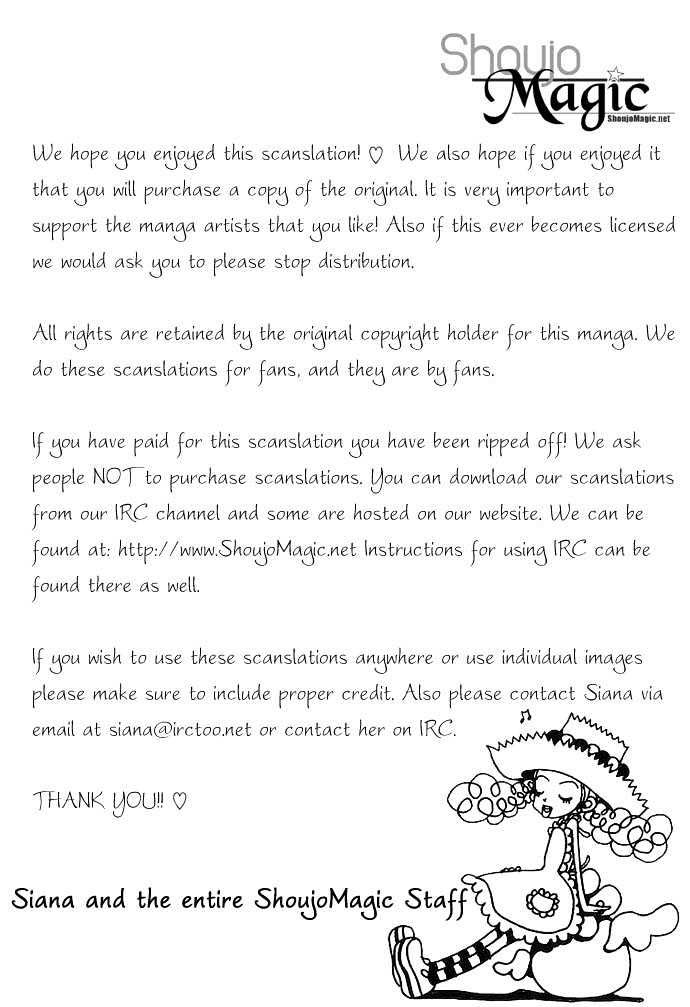 Shoujo
Magic
ShoujoMagic.net
We hope you enjoyed this scanslation! ♡ We also hope if you enjoyed it
that you will purchase a copy of the original. It is very important to
support the manga artists that you like! Also if this ever becomes licensed
we would ask you to please stop distribution.
All rights are retained by the original copyright holder for this manga. We
do these scanslations for fans, and they are by fans.
If you have paid for this scanslation you have been ripped off! We ask
people NOT to purchase scanslations. You can download our scanslations
from our IRC channel and some are hosted on our website. We can be
found at: http://www.ShoujoMagic.net Instructions for using IRC can be
found there as well.
If you wish to use these scanslations anywhere or use individual images
please make sure to include proper credit. Also please contact Siana via
email at siana@irctoo.net or contact her on IRC.
THANK YOU!! ♡
Siana and the entire ShoujoMagic Staff